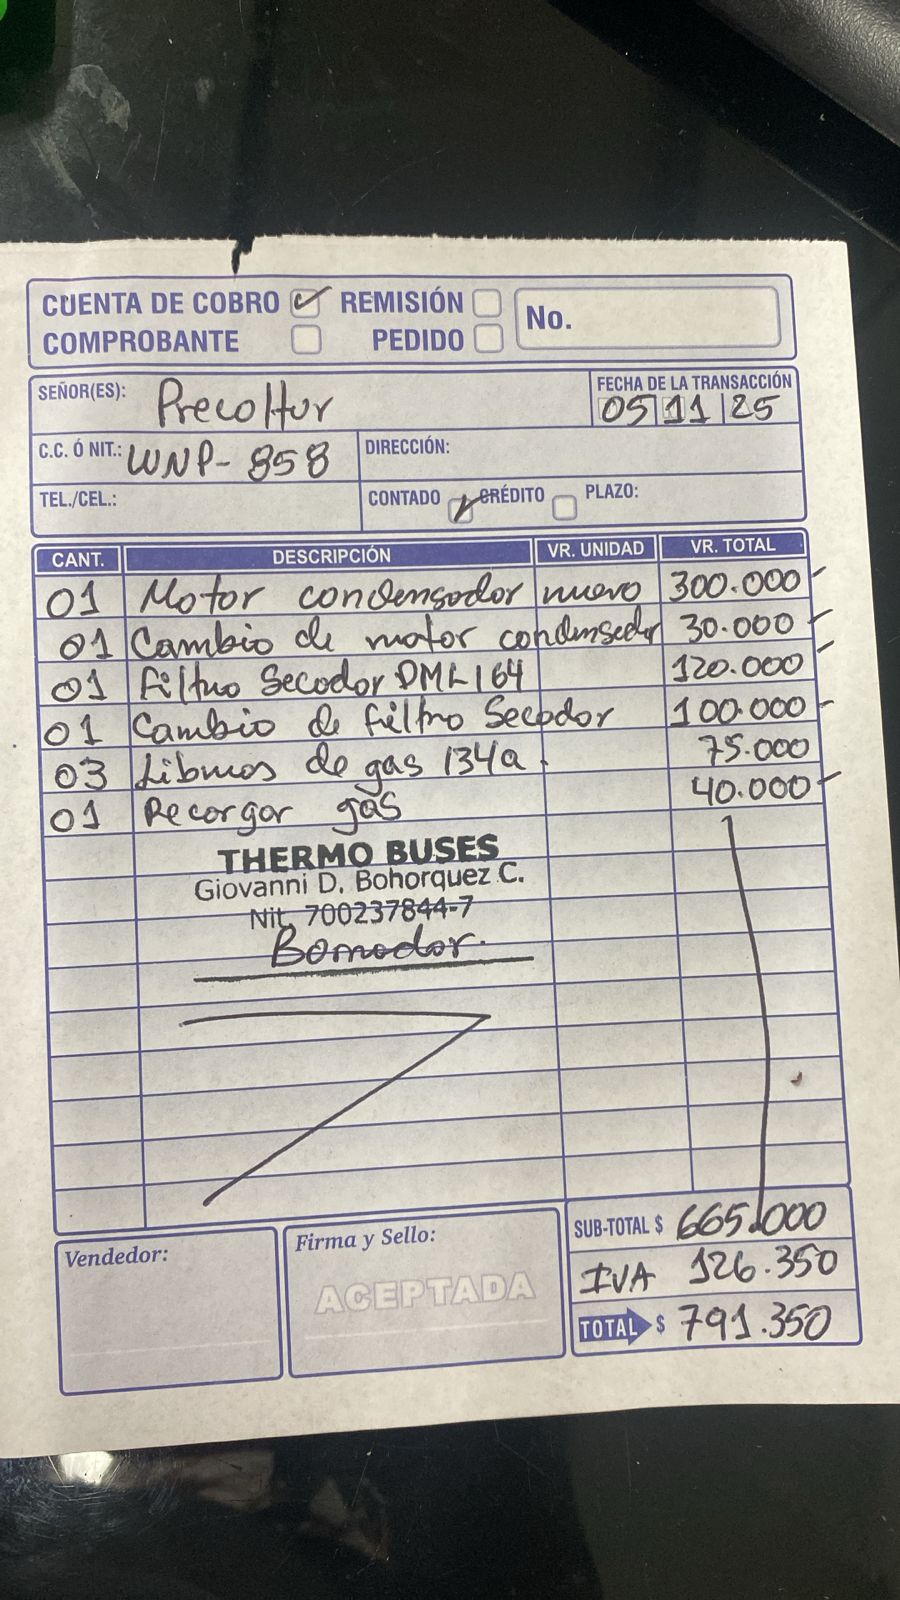 CUENTA DE COBRO ✓ REMISIÓN
COMPROBANTE PEDIDO
No.
SEÑOR(ES): Precoltur
FECHA DE LA TRANSACCIÓN
05 11 25
C.C. Ó NIT.: WNP-858 DIRECCIÓN:
TEL./CEL.: CONTADO ✓ CRÉDITO PLAZO:
CANT. DESCRIPCIÓN VR. UNIDAD VR. TOTAL
01 Motor condensador nuevo 300.000
01 Cambio de motor condensador 30.000
01 Filtro Secador DML 164 120.000
01 Cambio de filtro Secador 100.000
03 Libras de gas 134a. 75.000
01 Recargar gas 40.000
THERMO BUSES
Giovanni D. Bohorquez C.
Nit. 700237844-7
SUB-TOTAL $ 665.000
IVA 126.350
TOTAL $ 791.350
Vendedor:
Firma y Sello:
ACEPTADA